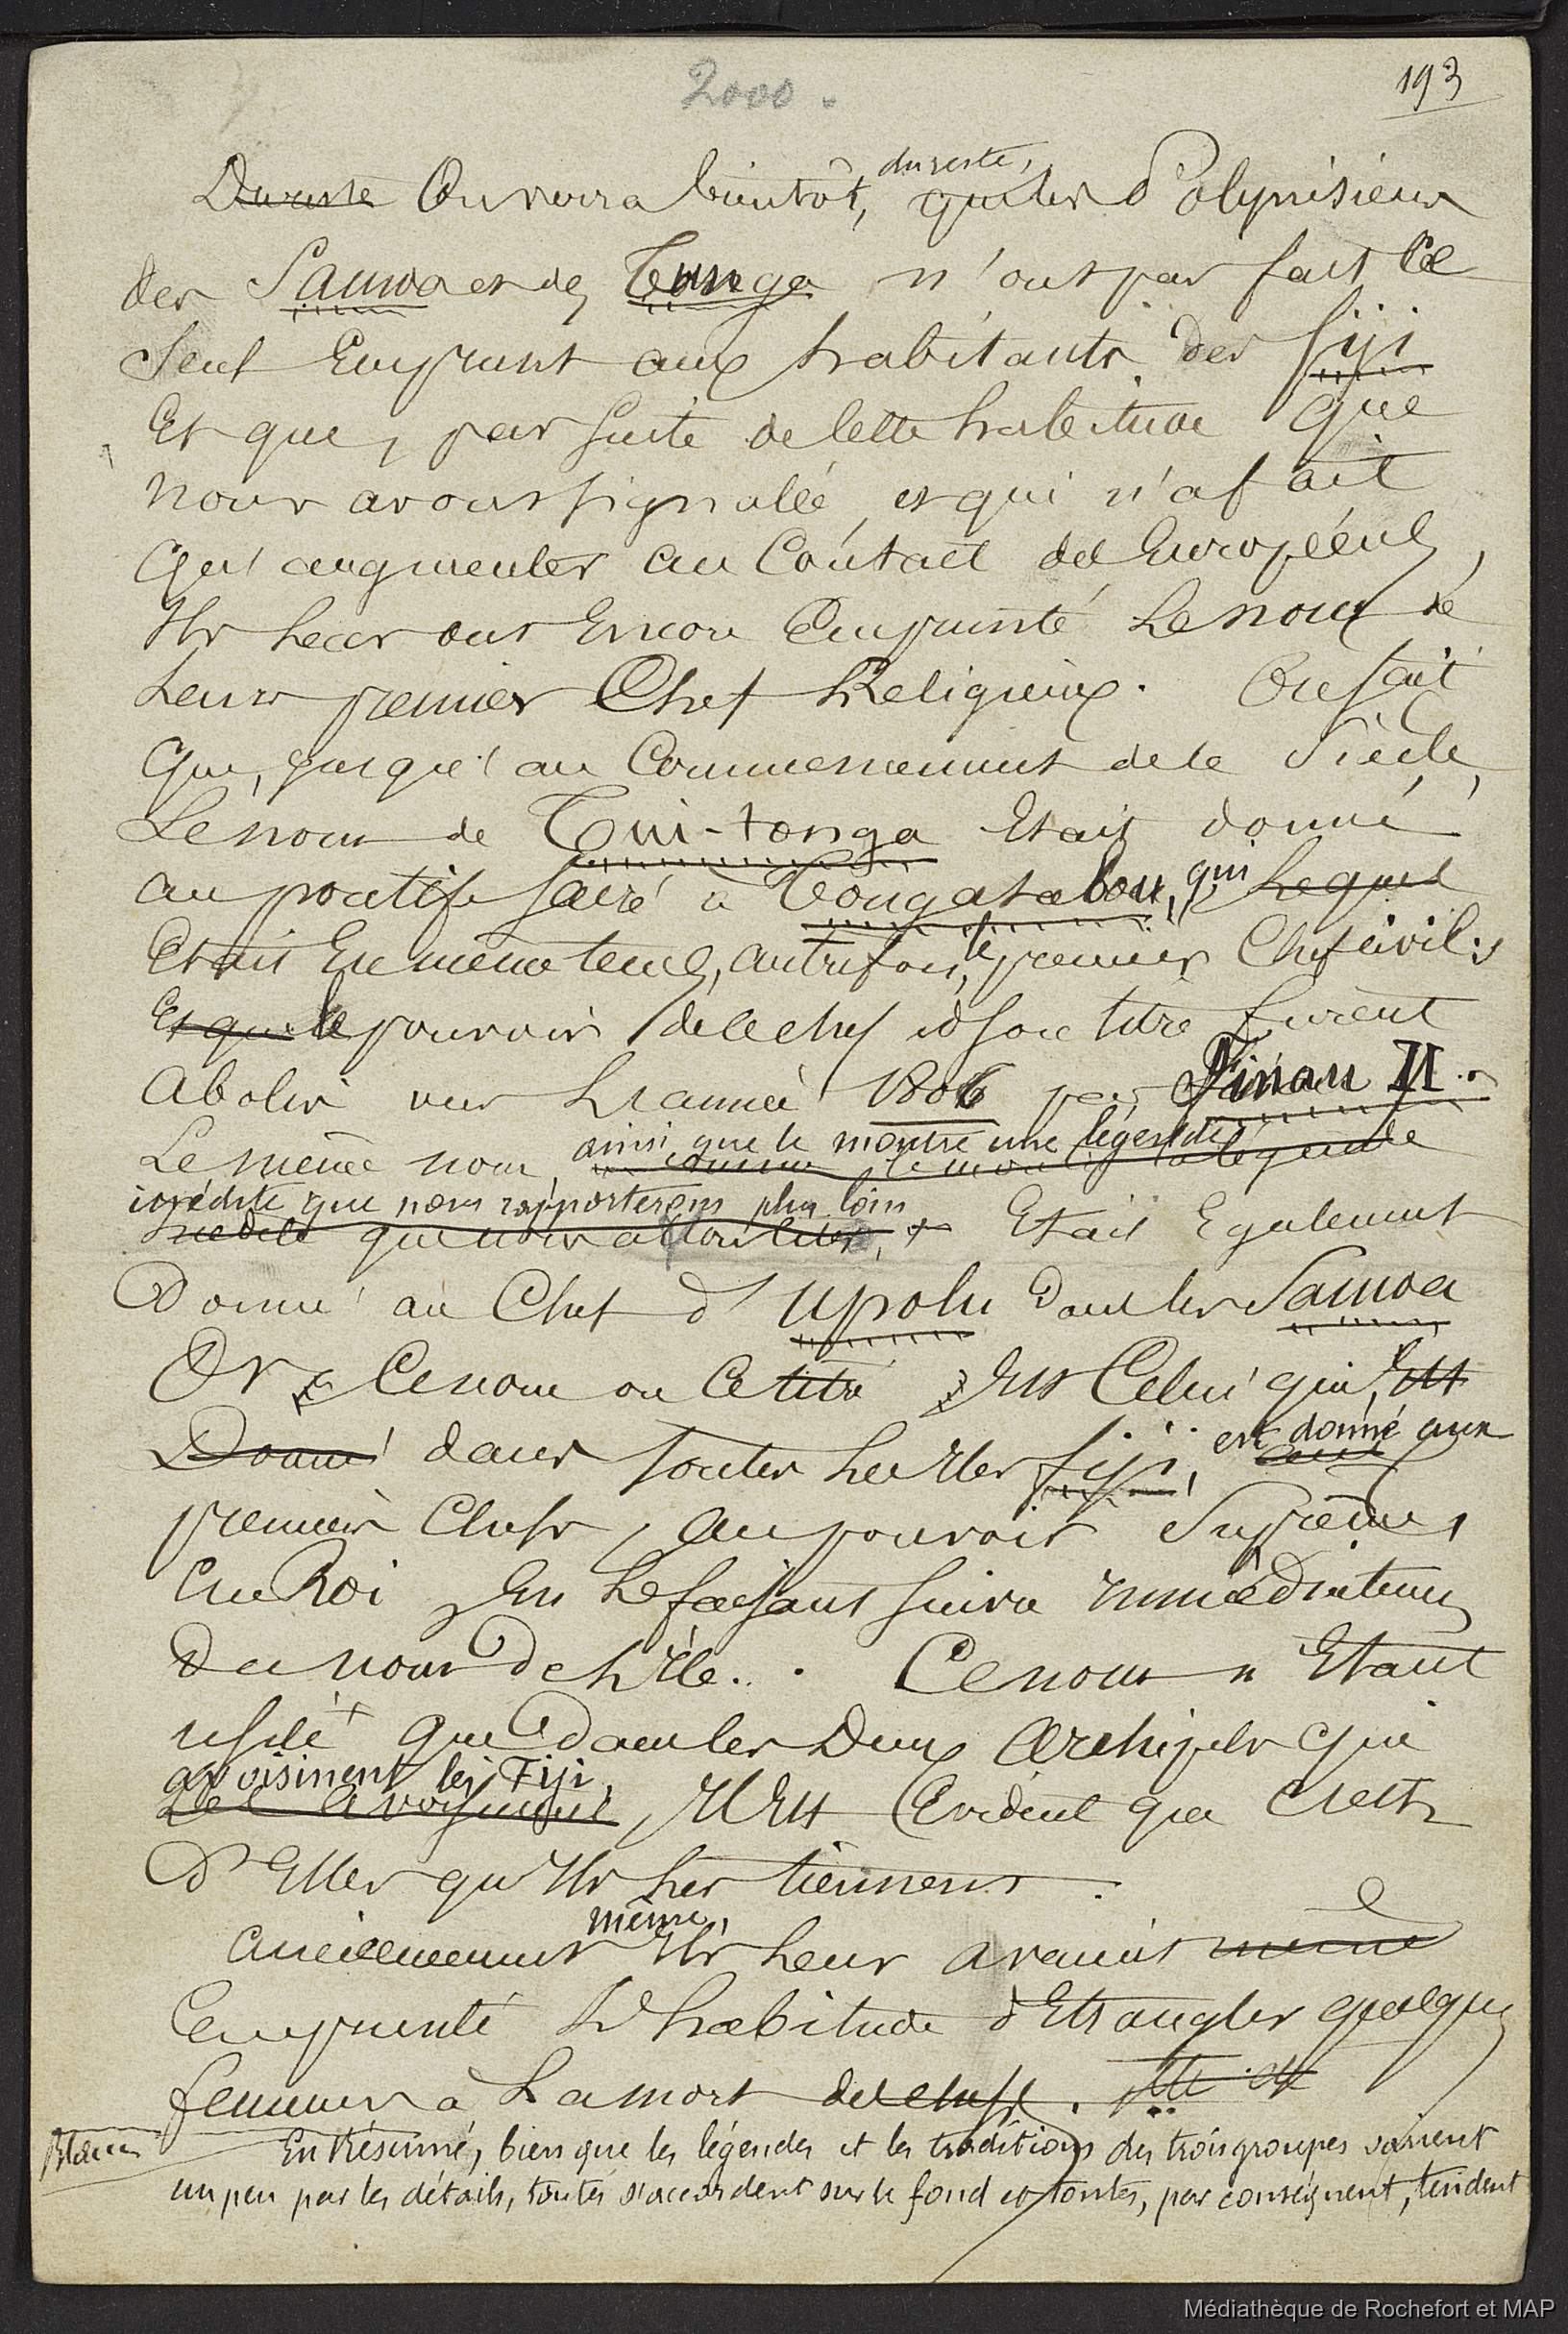 2000.
193
Du reste On verra bientôt, du reste, que les Polynésiens
des Samoa et des Tunga n'ont pas fait ce
seul Emprunt aux habitants des fiji
Et que, par suite de cette habitude que
nous avons signalée, et qui n'a fait
qu'augmenter au Contact des Européens,
Ils leur ont Encore Emprunté le nom de
leur premier Chef Religieux. On sait
que, jusqu'au Commencement de ce Siècle,
Le nom de Tui-tonga Etait donné
au pontife sacré à Tongatabou, qui lequel
Etait En même tems, autrefois, le premier Chef civil:
Et que le pouvoir de ce chef et son titre furent
abolis vers L'année 1806 par Finau II.
Le même nom, ainsi que le montre une légende
inédite que nous rapporterons plus loin
inédite que nous allons citer, Etait Egalement
Donné au Chef d'Upolu dans les Samoa
Or Ce nom ou Ce titre Est Celui qui, Est
Donné dans toutes les Iles fiji, est donné aux
premiers Chefs, au pouvoir Suprême,
au Roi En Le faisant suivre immédiatement
du nom De L'Ile. Ce nom n'Etant
usité que dans les Deux Archipels qui
avoisinent les Fiji,
les avoisinent, Il Est Evident que C'est
d'Elles qu'Ils les tiennent.
Anciennement même, Ils leur avaient même
Emprunté L'habitude d'Etrangler quelques
femmes à La mort des chefs.
Blanc
En Résumé, bien que les légendes et les traditions des trois groupes varient
un peu par les détails, toutes s'accordent sur le fond et toutes, par conséquent, tendent
Médiathèque de Rochefort et MAP